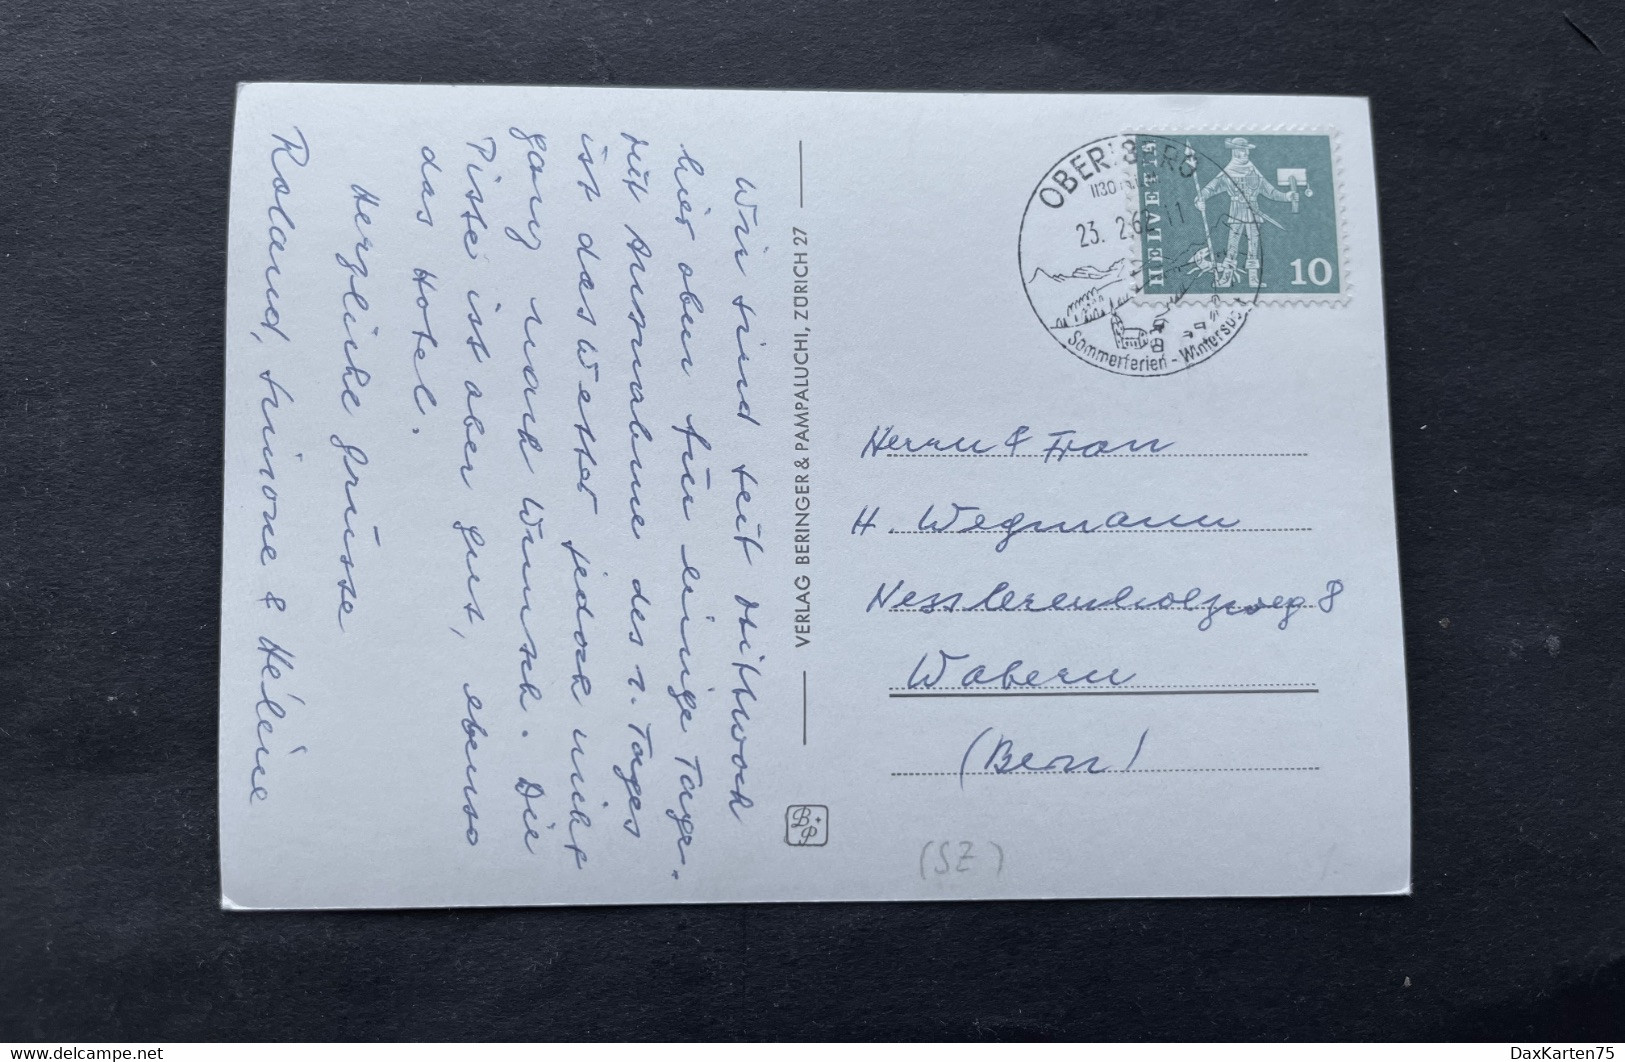 Wir sind seit Mittwoch
hier oben für einige Tage.
Mit Ausnahme des 1. Tages
ist das Wetter jedoch nicht
ganz nach Wunsch. Die
Piste ist aber gut, ebenso
das Hotel.
Herzliche Grüsse
Roland, Simone & Hélène
VERLAG BERINGER & PAMPALUCHI, ZÜRICH 27
B+P
OBERIBERG
1130
23. 2.62-11
Sommerferien - Wintersport
HELVETIA
10
Herrn & Frau
H. Wegmann
Nesslerenholzweg 8
Wabern
(Bern)
(SZ)
delcampe.net
DaxKarten75